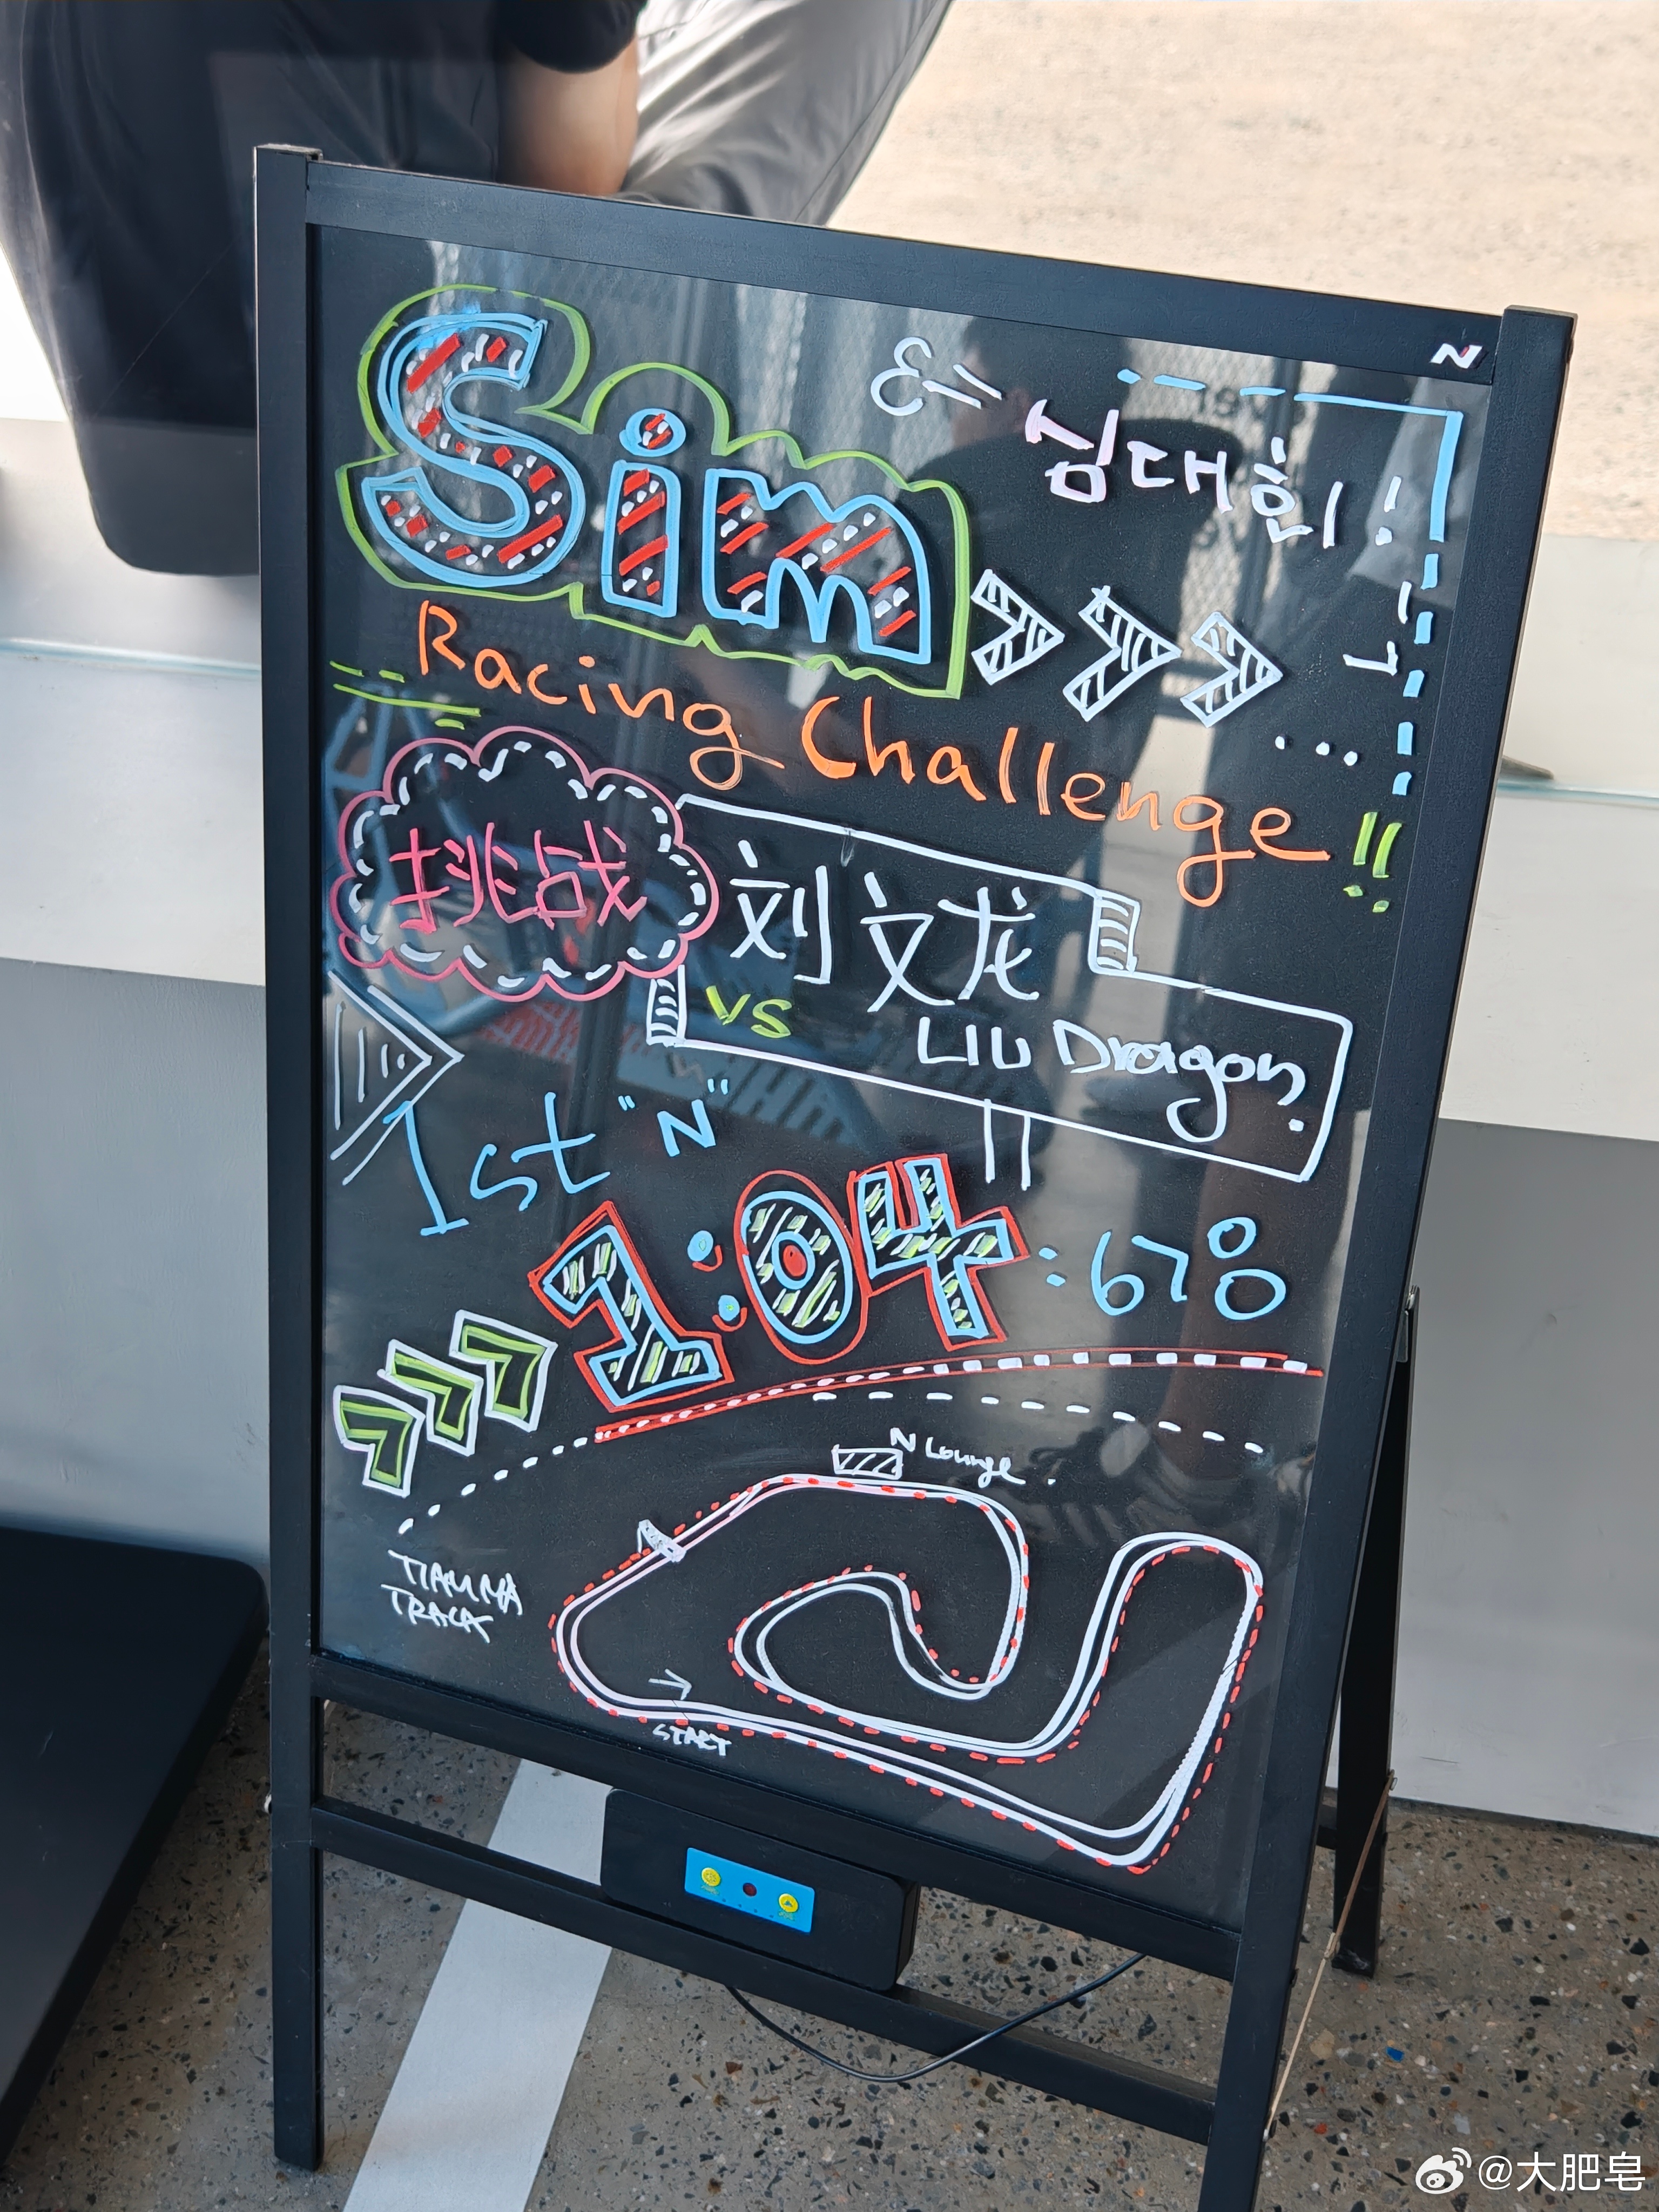 N
Sim
심대회!
Racing Challenge!!
挑战
刘文龙
VS
LIU Dragon.
1st "N"
1:04:678
N Lounge.
TIANMA
TRACK
START
@大肥皂